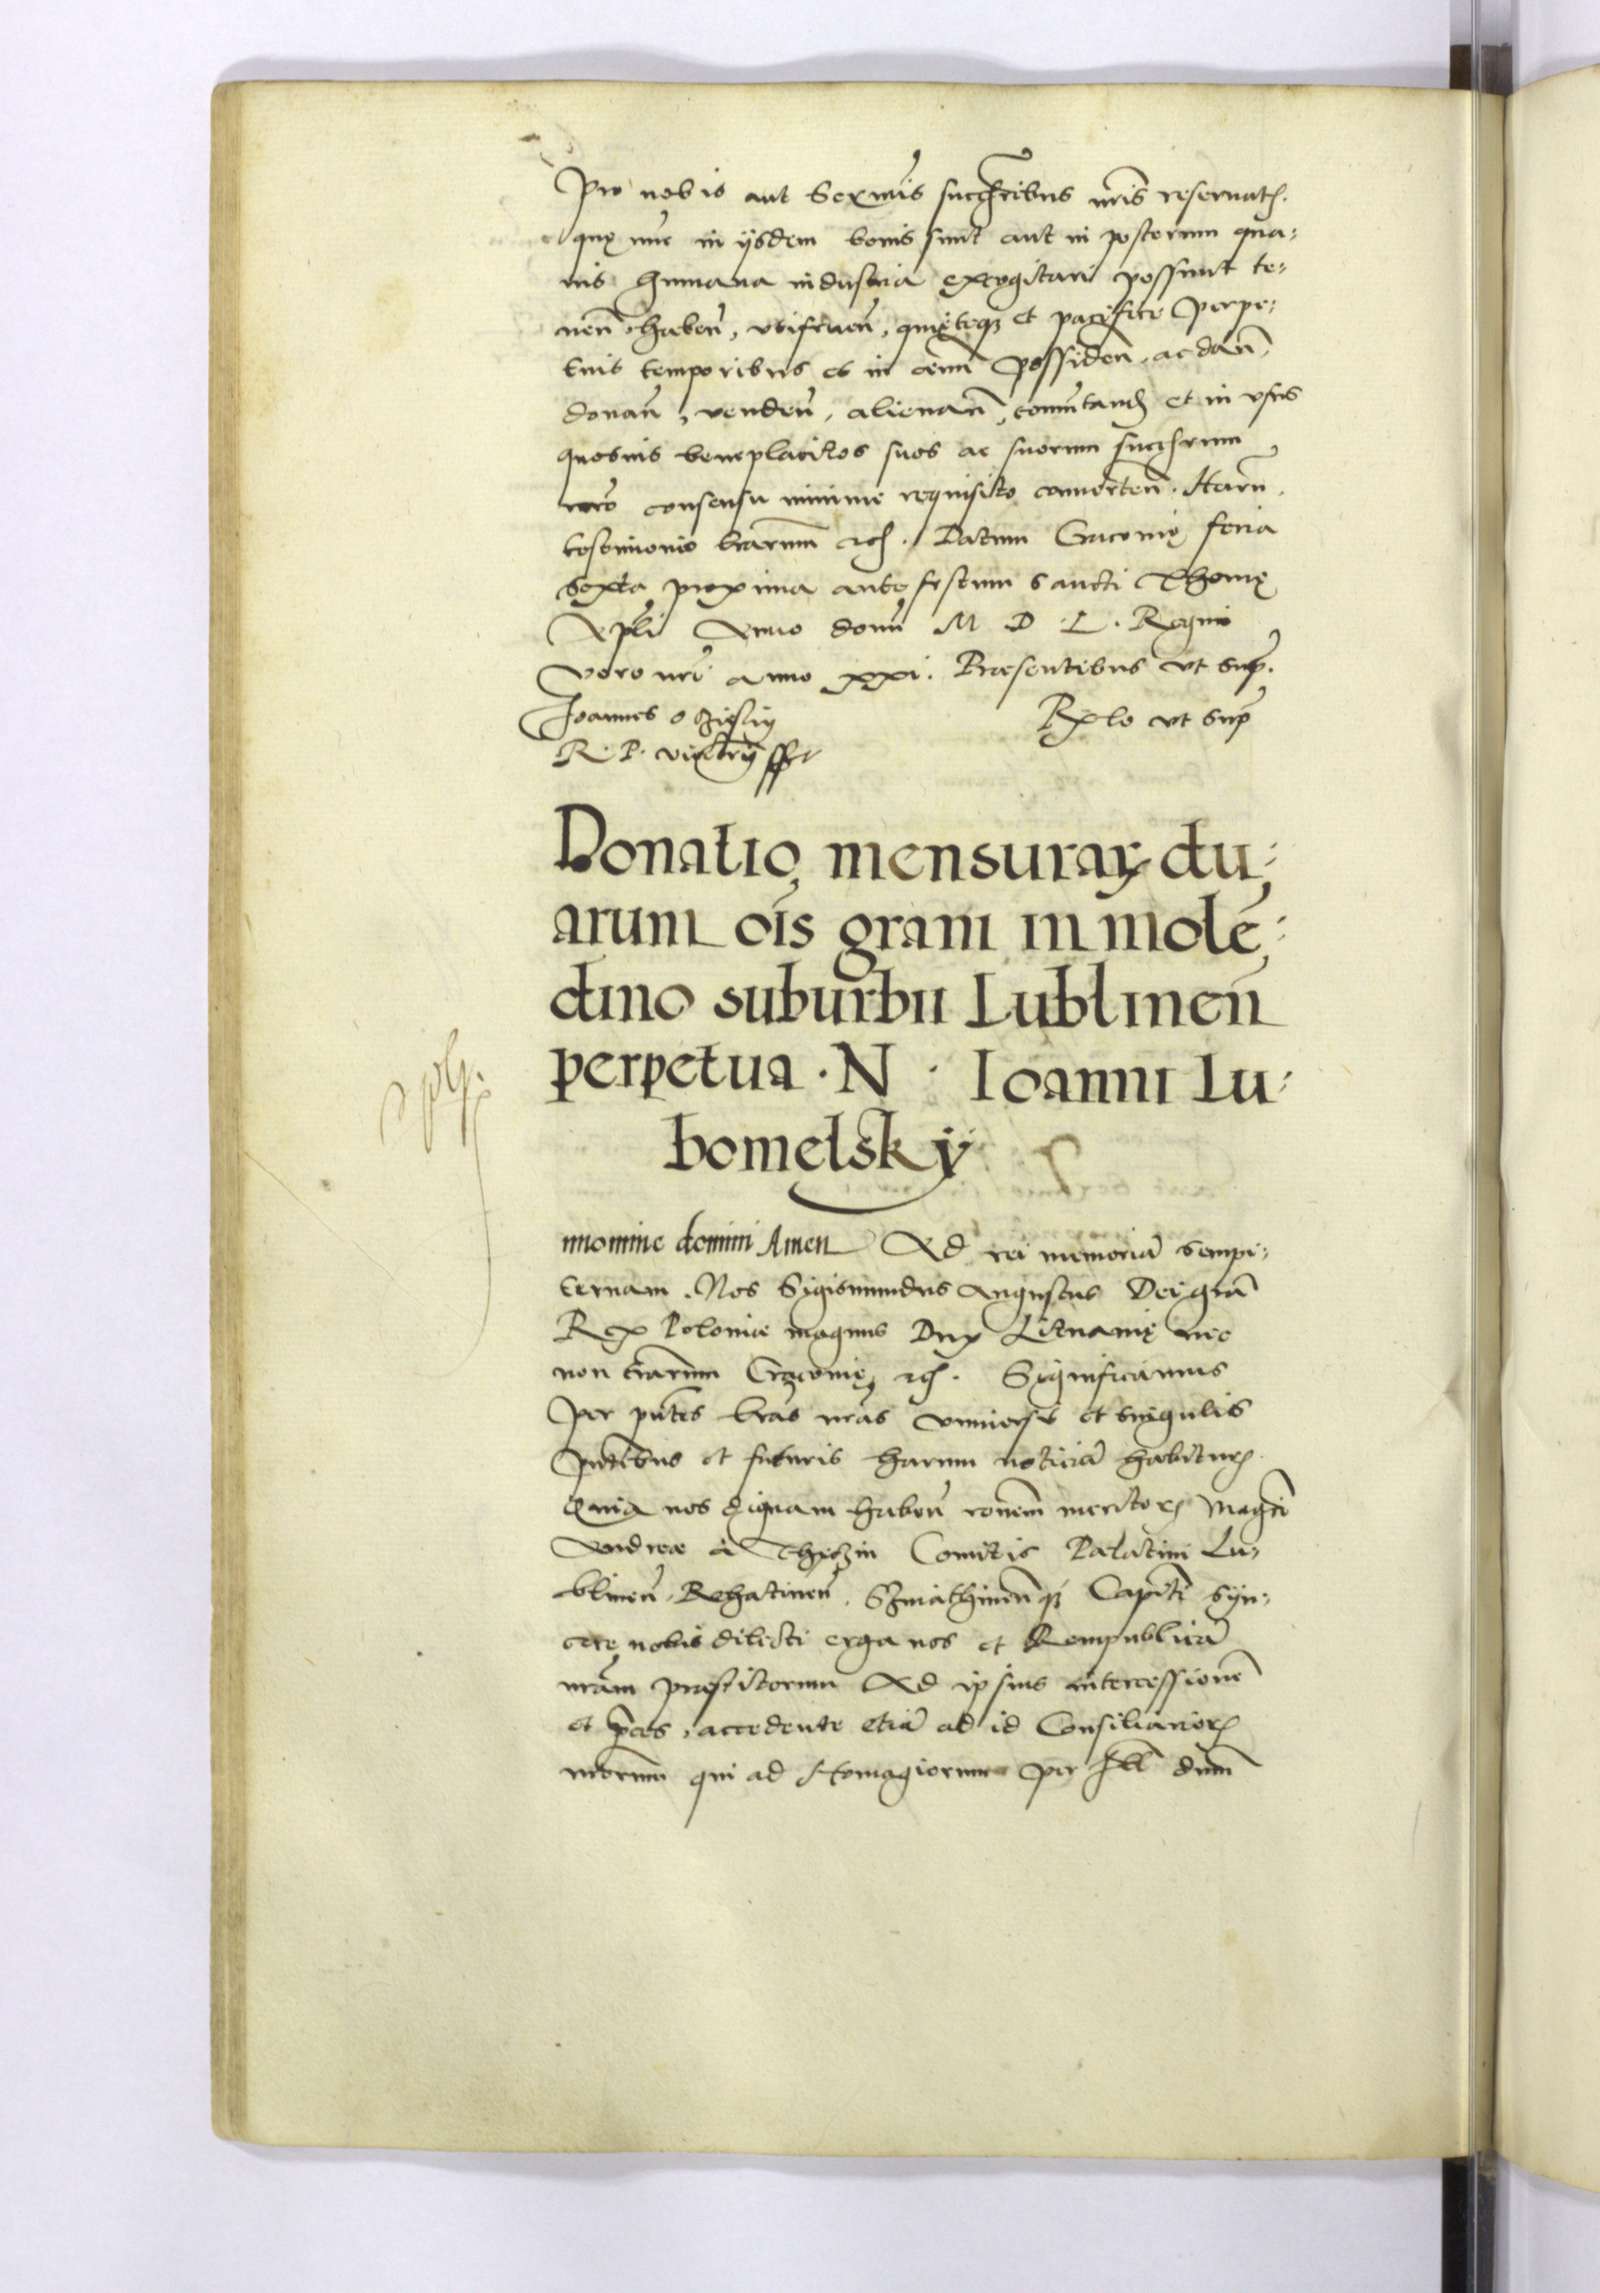 Pro nobis aut Serẽmis succesribus nr̃is reseruatis.
quę nũc in ijsdem bonis sunt aut in posterum qua-
uis humana industria excogitari possunt te-
nen̄, haben̄, utifruen̄, quięteq3 et pacifice perpe-
tuis temporibus et in ẽũm possiden̄, ac dan̄,
donan̄, venden̄, alienan̄, comutand et in vsus
quosuis beneplacitos suos ac suorum succsorum
nr̃o consensu minime requisito conuerten̄. Harũ
testimonio lr̃arum etc. Datum Cracouię feria
sexta proxima ante festum Sancti Thomę
Apl̃i Anno domĩ M D L. Regni
vero nr̃i anno xxi. Præsentibus ut sup.
Joannes Oczieski
R. P. vicecancʳij sst
Rełо ut sup
Donatio mensurarꝫ du-
arum oĩs grani in molẽ-
dino suburbii Lublinen̄
perpetua . N . Ioanni Lu-
bomelsky
In nomine domini Amen Ad rei memoriã sempi-
ternam. Nos Sigismundus Augustus Dei gr̃a
Rex Poloniæ magnus Dux Lituanię nec
non terrarum Cracouię, etc. Significamus
per pñtes lr̃as nr̃as vniuersis et singulis
pñtibus et futuris harum noticiã habituris.
Quia nos dignam haben̄ ronem meritorꝫ Magcĩ
Andreæ à Thęczin Comitis Palatini Lu-
blinen̄, Rohatinen̄, Sniathinen̄q3 Capitĩ syn-
cere nobis dilecti erga nos et Rempublicã
nr̃am præstitorum Ad ipsius intercessionẽ
et p̃ces, accedente etiã ad id Consiliariorꝫ
nr̃orum qui ad homagiorum per Ill̃ dum̃